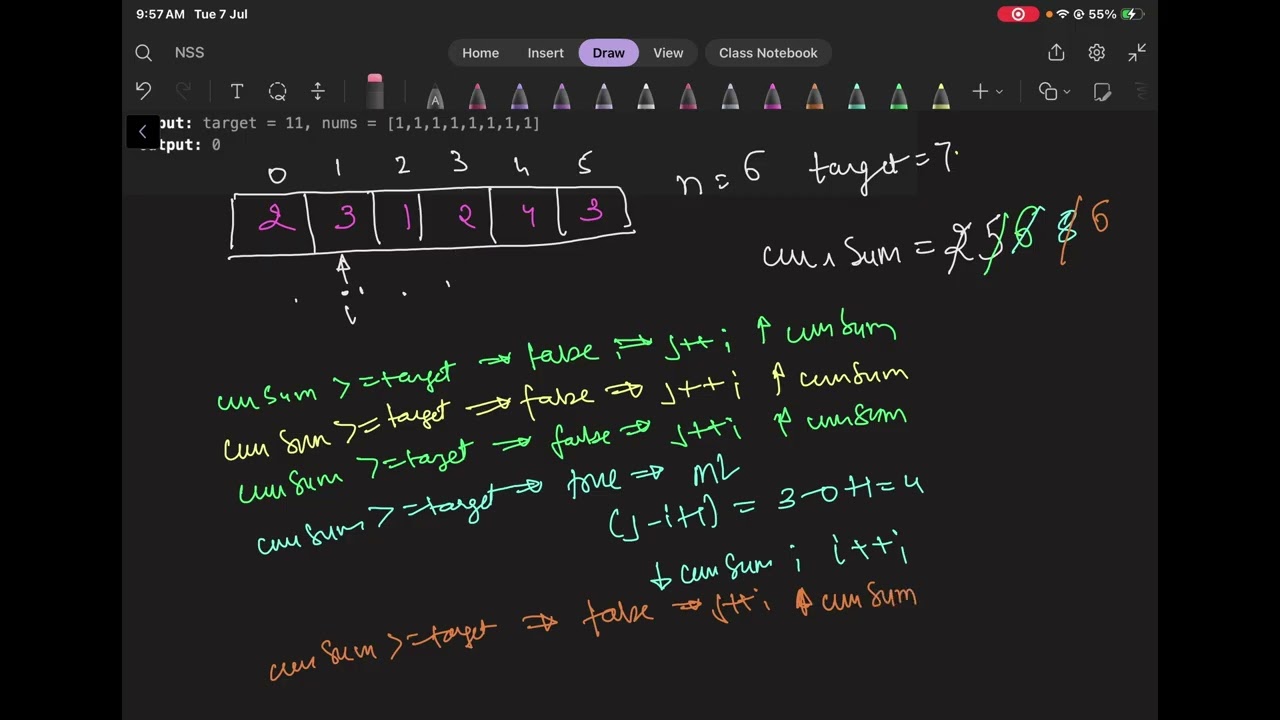 9:57 AM Tue 7 Jul 55%
NSS Home Insert Draw View Class Notebook
T A
put: target = 11, nums = [1,1,1,1,1,1,1,1]
utput: 0
0 1 2 3 4 5
n = 6 target = 7
2 3 1 2 4 3
curr Sum = 2 5 6 8 6
i
curr Sum >= target ⇒ false ⇒ j++; ↑ curr Sum
curr Sum >= target ⇒ false ⇒ j++; ↑ curr Sum
curr Sum >= target ⇒ false ⇒ j++; ↑ curr Sum
curr Sum >= target ⇒ true ⇒ ML
(j-i+1) = 3-0+1 = 4
↓ curr Sum ; i++;
curr Sum >= target ⇒ false ⇒ j++; ↑ curr Sum